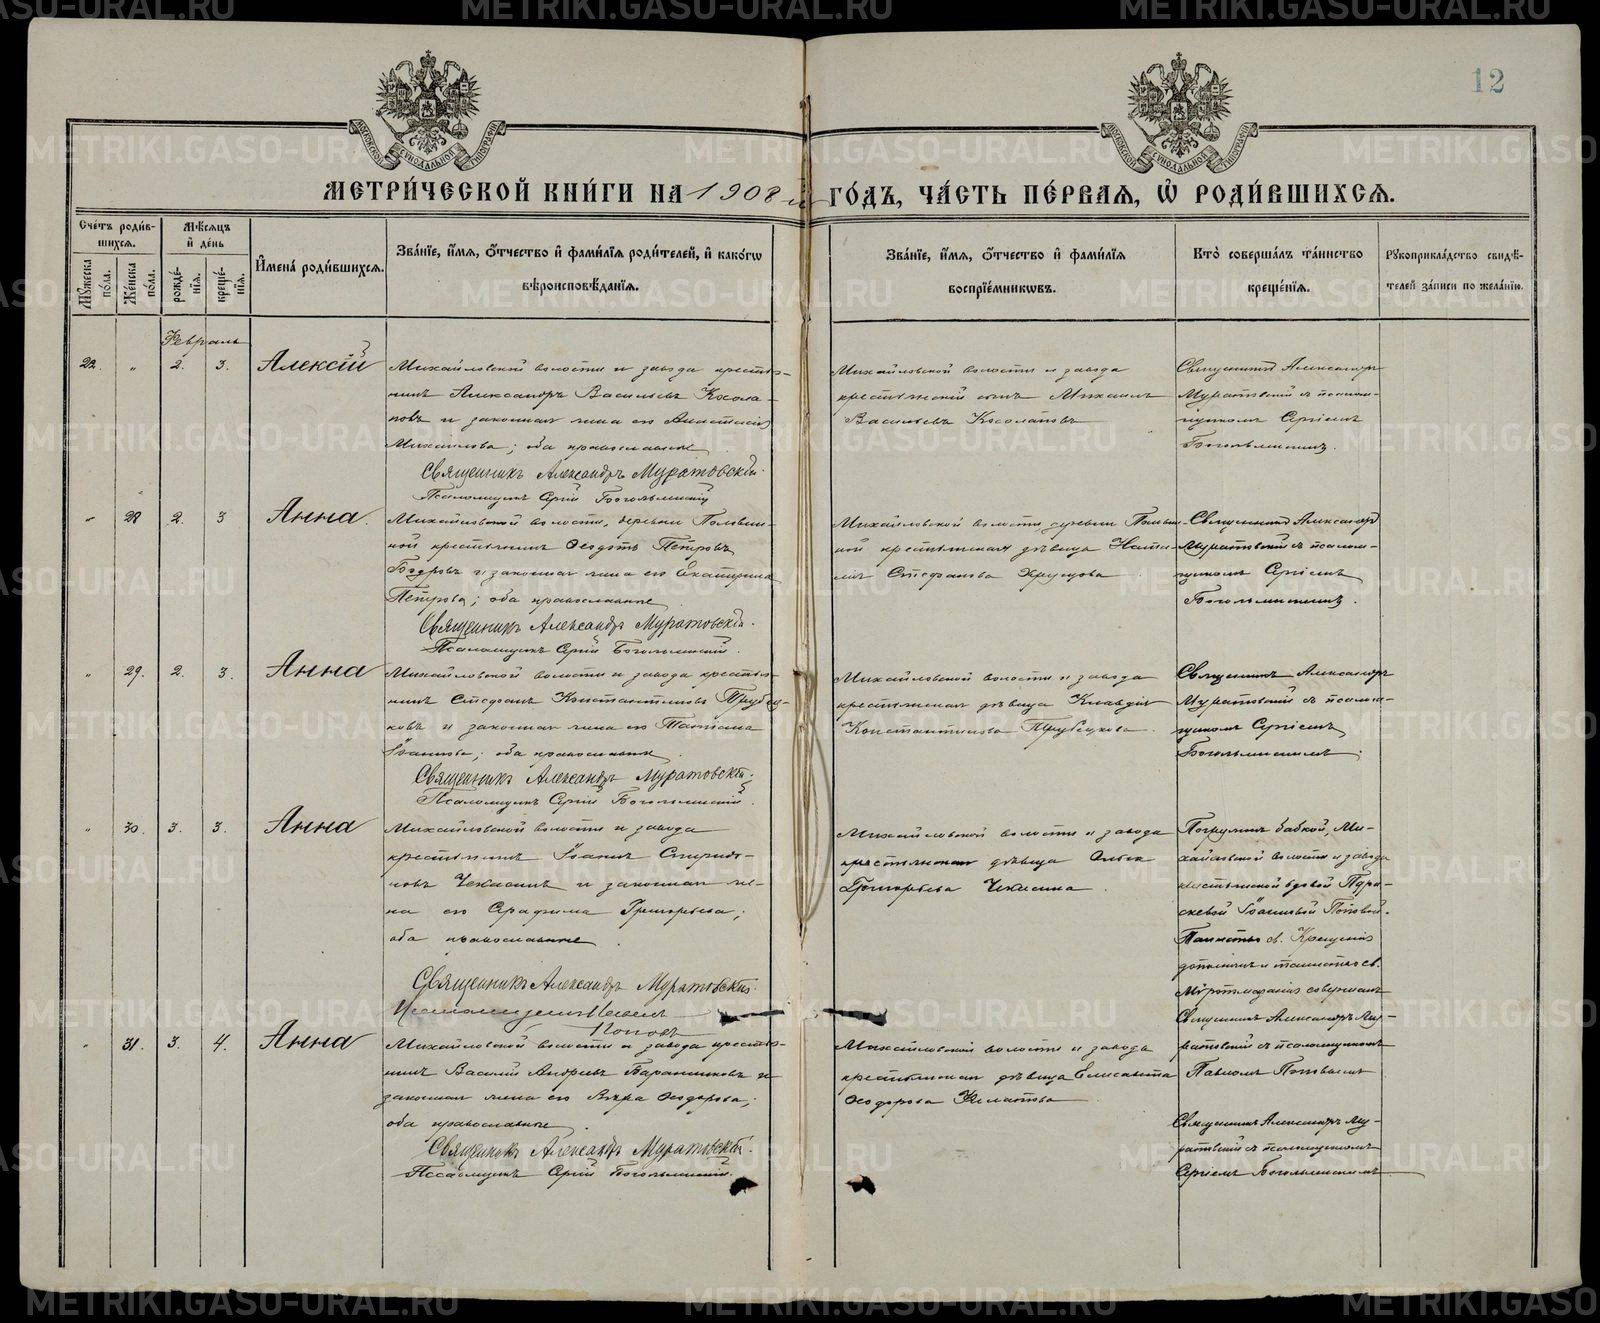 12
МЕТРИ́ЧЕСКОЙ КНИ́ГИ НА 1908 й ГО́ДЪ, ЧА́СТЬ ПЕ́РВАЯ, Ѽ РОДИ́ВШИХСЯ.
Сче́тъ роди́в-
шихся.
Мꙋ́жеска по́ла.
Же́нска по́ла.
Мѣ́сяцъ и҆ де́нь
рожде́-
нїя.
креще́-
нїя.
И҆мена̀ роди́вшихся.
Зва́нїе, и҆́мя, ѻ҆́тчество и҆ фами́лїя роди́телей, и҆ како́гѡ
вѣроисповѣ́данїя.
Зва́нїе, и҆́мя, ѻ҆́тчество и҆ фами́лїя
воспрїе́мникѡвъ.
Кто̀ соверша́лъ та́инство
креще́нїя.
Рꙋкоприкла́дство свидѣ́-
телей за́писи по жела́нїю.
Февраль
22. „ 2. 3. Алексій
Михайловской волости и завода крестья-
нинъ Александръ Васильевъ Косола-
повъ и законная жена его Анастасія
Михайлова; оба православные
Священникъ Александръ Муратовскій.
Псаломщикъ Сергій Богомольскій
Михайловской волости и завода
крестьянскій сынъ Михаилъ
Васильевъ Косолаповъ
Священникъ Александръ
Муратовскій съ псалом-
щикомъ Сергіемъ
„ 28 2. 3 Анна.
Михайловской волости, деревни Полович-
ной крестьянинъ Ѳеодотъ Петровъ
и законная жена его Екатерина
Петрова; оба православные
Священникъ Александръ Муратовскій.
Псаломщикъ Сергій
Михайловской волости деревни
ной крестьянская дѣвица
Стефанова
Священникъ Александръ
Муратовскій съ псалом-
щикомъ Сергіемъ
„ 29. 2. 3. Анна
Михайловской волости и завода крестья-
нинъ Стефанъ Константиновъ Трубец-
ковъ и законная жена его Татіана
Іоаннова; оба православные
Священникъ Александръ Муратовскій.
Псаломщикъ Сергій
Михайловской волости и завода
крестьянская дѣвица Клавдія
Константинова Трубецкова.
Священникъ Александръ
Муратовскій съ псалом-
щикомъ Сергіемъ
„ 30. 3. 3. Анна
Михайловской волости и завода
крестьянинъ Іоаннъ Спиридо-
новъ Чекасинъ и законная же-
на его Серафима Григорьева;
оба православные
Священникъ Александръ Муратовскій.
Псаломщикъ Павелъ
Поповъ
Михайловской волости и завода
крестьянская дѣвица Ольга
Григорьева Чекасина.
Погружен бабкой, Ми-
хайловской волости и завода
крестьянской вдовой Пара-
скевой Іоанновой Поповой.
Таинство св. Крещенія
дополнилъ и таинство св.
Мѵропомазанія совершилъ
Священникъ Александръ Му-
ратовскій съ псаломщикомъ
Павломъ Поповымъ
„ 31. 3. 4. Анна
Михайловской волости и завода крестья-
нинъ Василій Андреевъ Баранниковъ и
законная жена его Вѣра Ѳеодорова;
оба православные
Священникъ Александръ Муратовскій.
Псаломщикъ Сергій
Михайловской волости и завода
крестьянская дѣвица Елисавета
Ѳеодорова
Священникъ Александръ Му-
ратовскій съ псаломщикомъ
Сергіемъ
METRIKI.GASO-URAL.RU